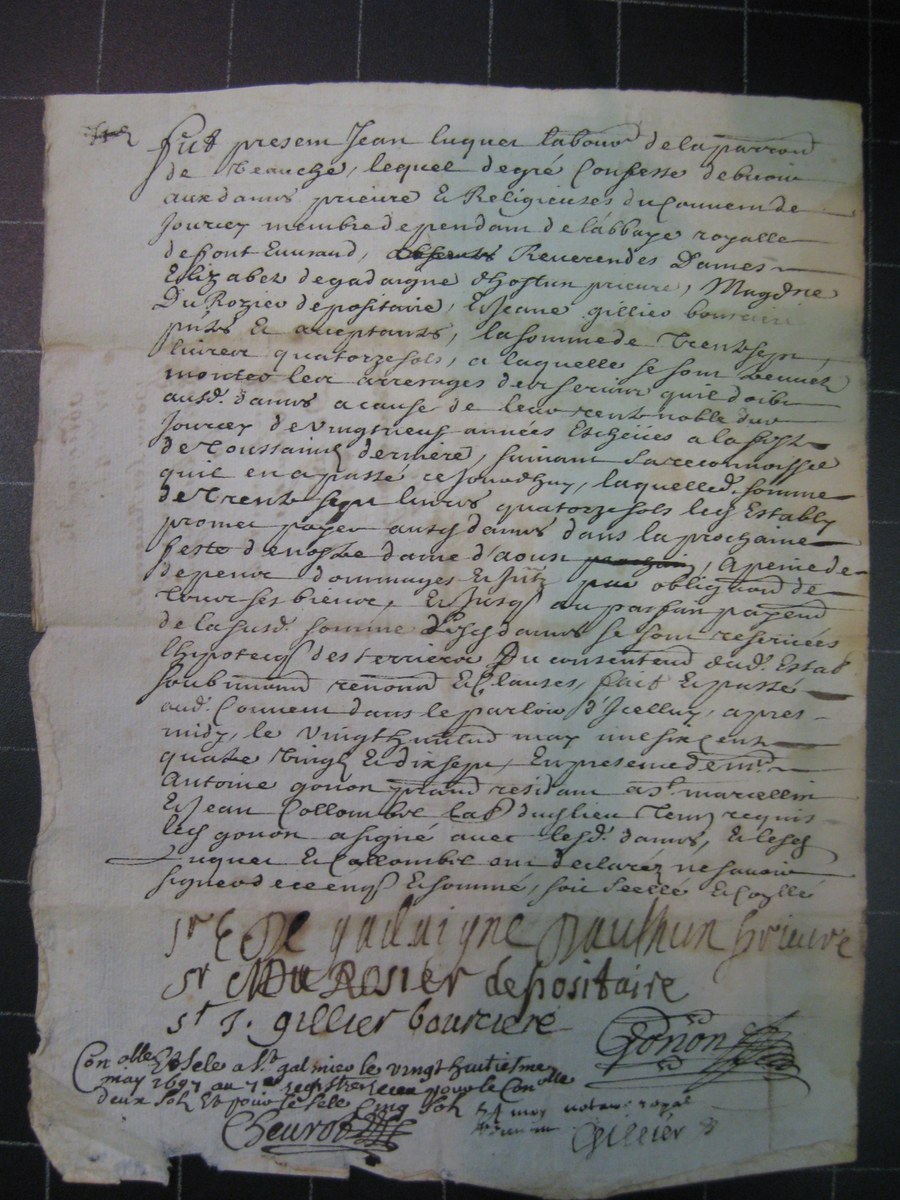 fut present Jean luquet labour de la parroi
de Neauche, lequel de gré Confesse debvoir
aux dames prieure & Religieuses du Couvent de
Jourcey membre dependam de l'abbaye royalle
de font Evuraud, Reverendes Dames
Elizabet de gadaigne d'hostun prieure, Magd.ne
Du Rozier depositaire, & Jeane gillier boursiere
p.ntes & acceptantes, la somme de Trentsept
livres quatorze sols, a laquelle se sont treuvés
monter les arrerages des servis qu'il doibt
ausd. dames a cause de leur rente noble dud
Jourcey de vingtneuf années Escheües a la feste
de Toussaincts derniere, suivant la reconnoissce
qu'il en a passé ce jourdhuy, laquelled. somme
de Trente sept livres quatorze sols led Estably
promet payer ausd dames dans la prochaine
feste de nostre dame d'aoust, a peine de
depens dommages & intz par obligaond de
tous ses biens, & jusqs au parfait payemt
de la susd. somme lesd dames se sont reservées
l'hypotecqs des terriers Du consentemt dud. Estab
soubmmand renond & Clauses, fait & passé
aud. Couvent dans le parloir d'Icelluy, apres
midy, le vingt huitiesme may mil six cent
quatre vingt & dix sept, En presence de mr.
Antoine gonon residant a st marcellin
& Jean Collombet lab dud lieu Tem requis
led gonon a signé avec lesd. dames, & lesd
Luquet & Collombet ont declaré ne scavoir
signer de ce enqs & sommé, soit seellé & coyllé
sr E De gadaigne Dauthun prieure
sr M Du Rosier depositaire
sr J. gillier bourciere
Gonon
Conolle Et sele a St galmier le vingt huitiesme
may 1697 au 7e registre receu pour le Conolle
deux sols Et pour le sele Cinq sols
Et moy notaire royal
Gillier